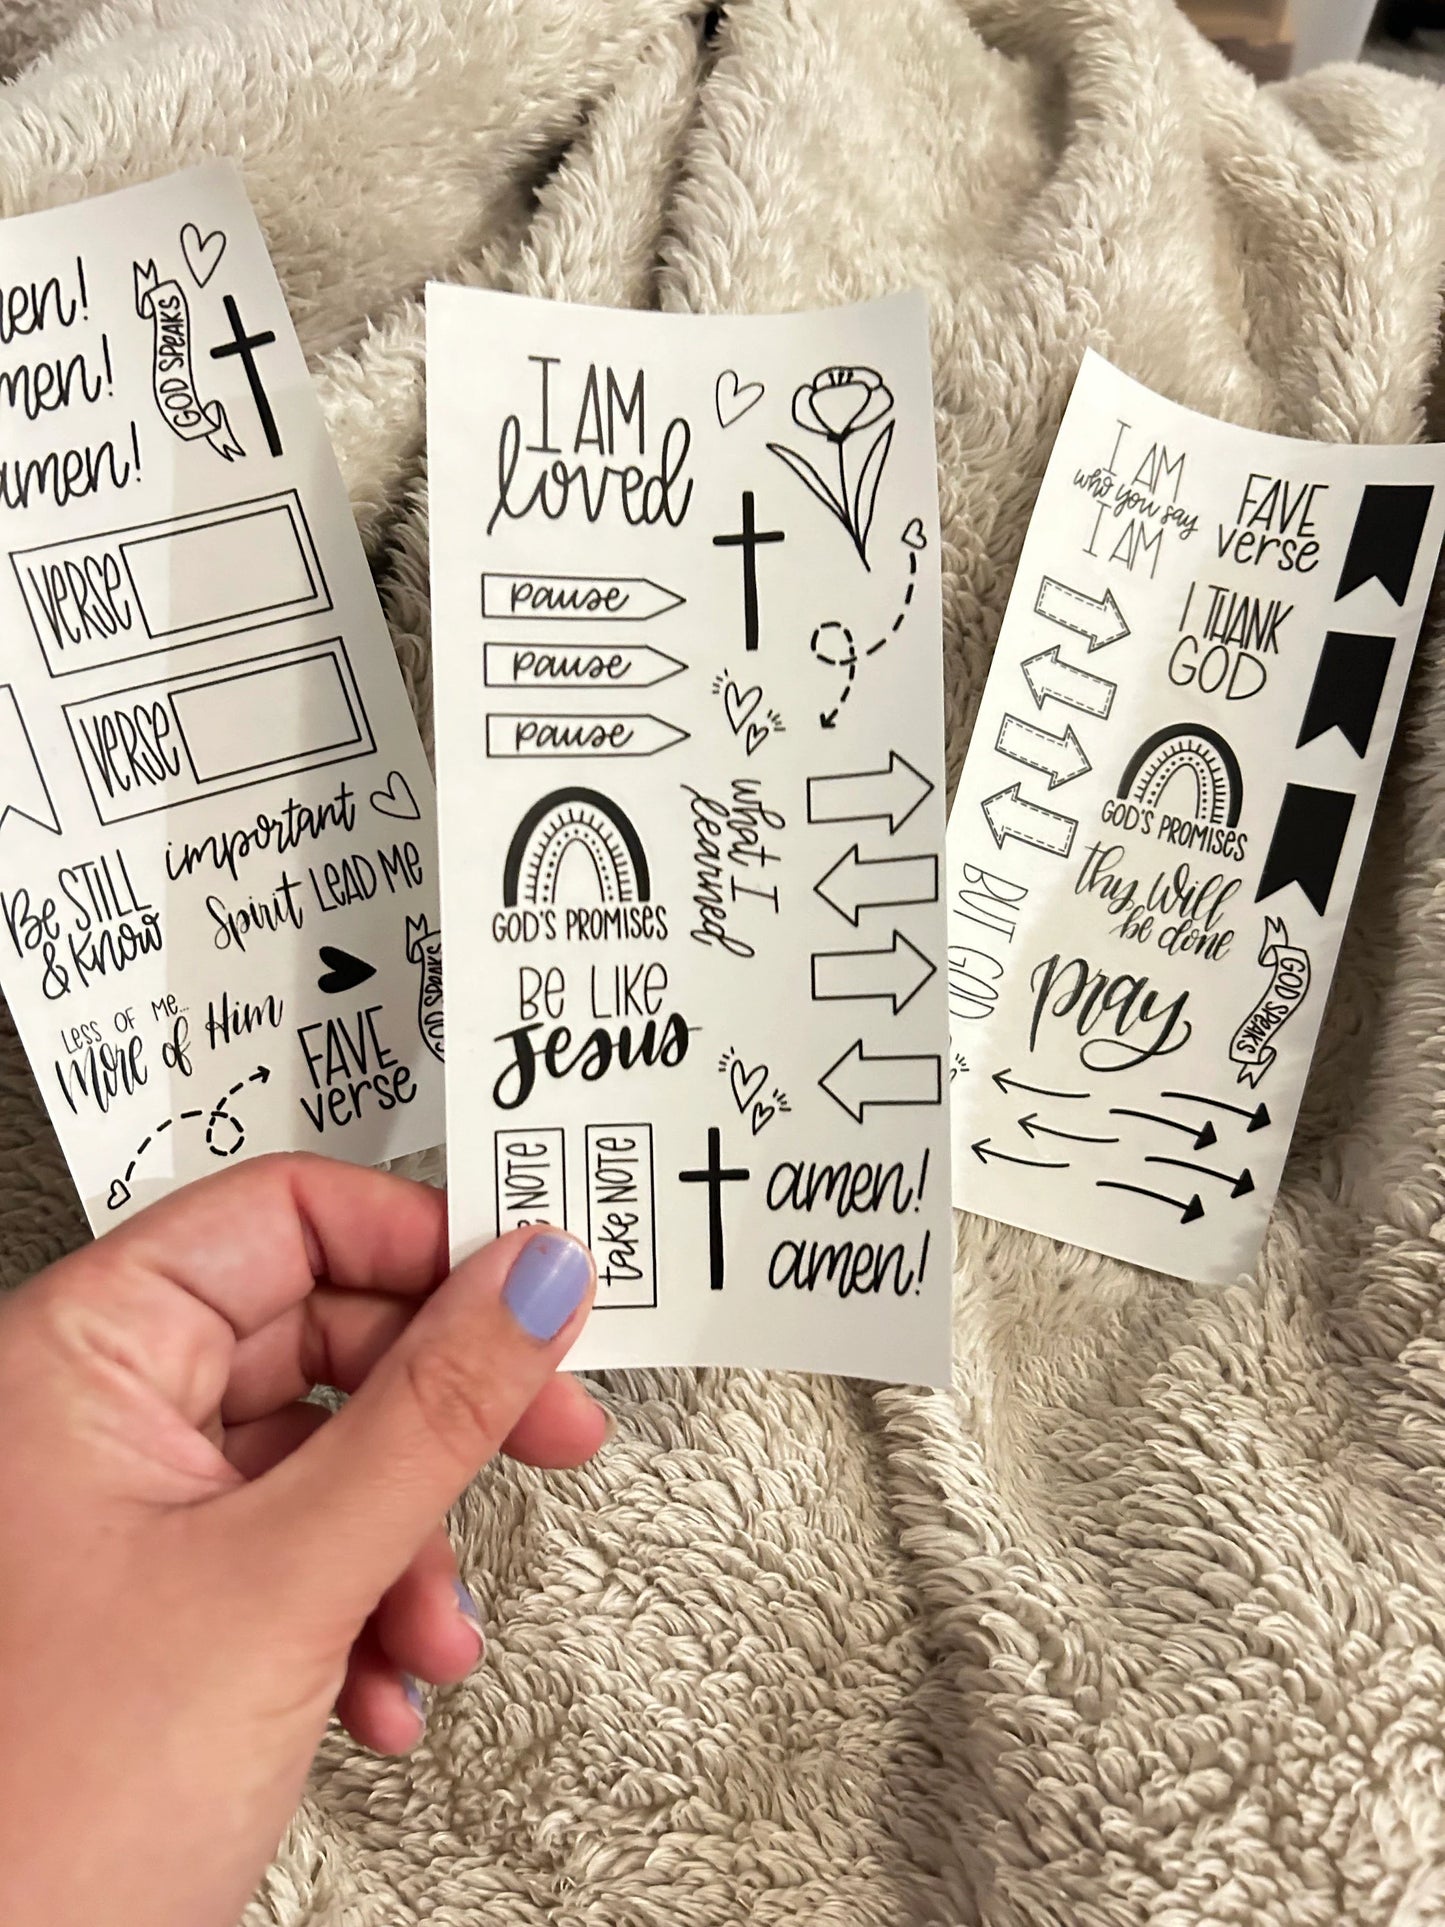 amen!
GOD SPEAKS
verse
verse
important
Be STILL
& Know
Spirit LEAD ME
LESS OF ME...
more of Him
FAVE
verse
GOD SPEAKS
I AM
loved
pause
pause
pause
what I
learned
GOD'S PROMISES
BE LIKE
Jesus
NOTE
take NOTE
amen!
amen!
I AM
who you say
I AM
FAVE
verse
I THANK
GOD
GOD'S PROMISES
thy will
be done
BUT GOD
pray
GOD SPEAKS